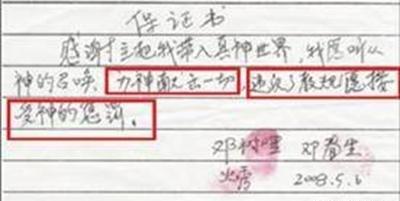 保证书
感谢主把我带入真神世界，我愿听从
神的召唤，为神献出一切，违反了教规愿接
受神的惩罚。
邓 邓
2008.5.6